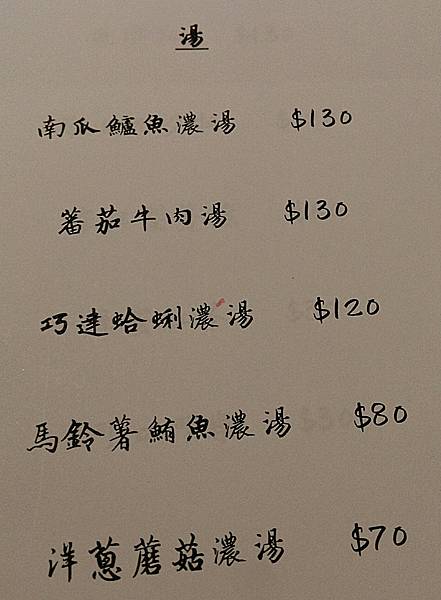 湯
南瓜鱸魚濃湯 $130
蕃茄牛肉湯 $130
巧達蛤蜊濃湯 $120
馬鈴薯鮪魚濃湯 $80
洋蔥蘑菇濃湯 $70